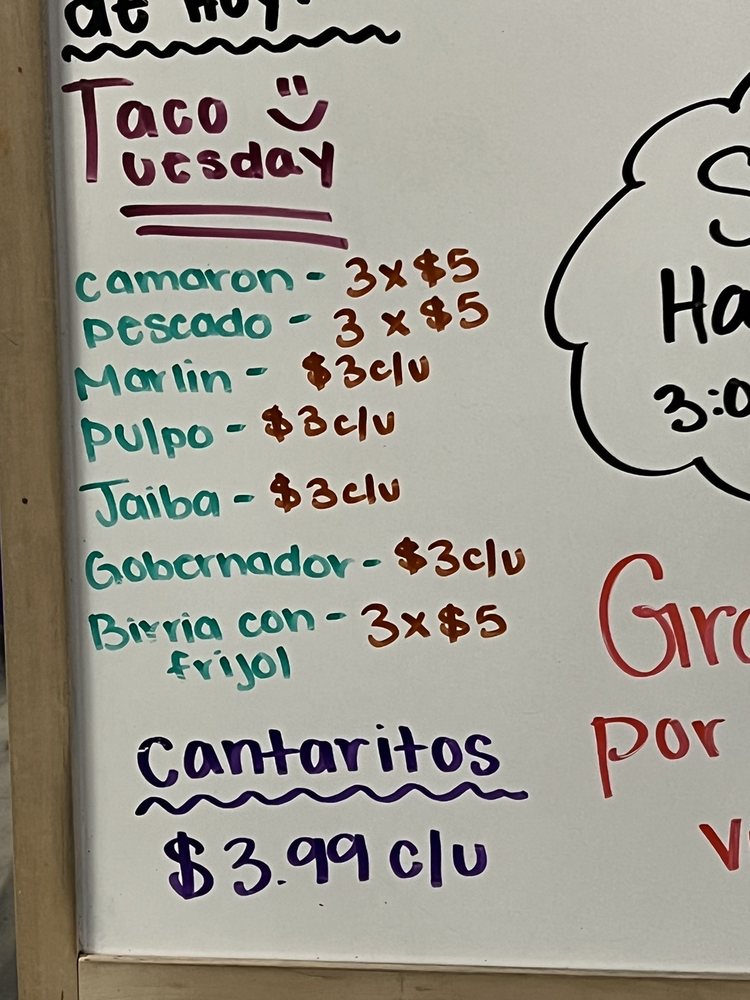 de Hoy!
Taco
Tuesday
camaron - 3x$5
pescado - 3 x $5
Marlin - $3 c/u
pulpo - $3 c/u
Jaiba - $3 c/u
Gobernador - $3 c/u
Birria con - 3x$5
frijol
Cantaritos
$3.99 c/u
Ha
3:0
por